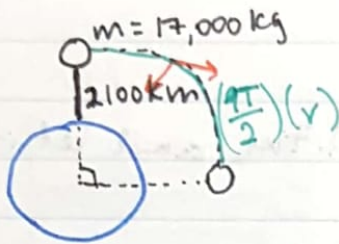 m = 17,000 kg
2100 km
(π/2)(r)